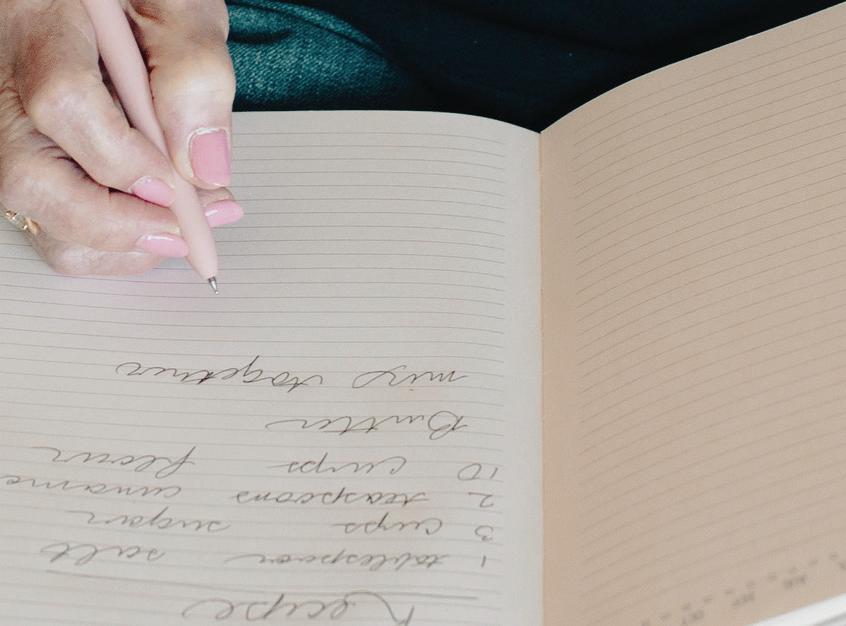 Recipe
1 tablespoon salt
3 cups sugar
2 teaspoons
10 cups flour
Butter
mix together